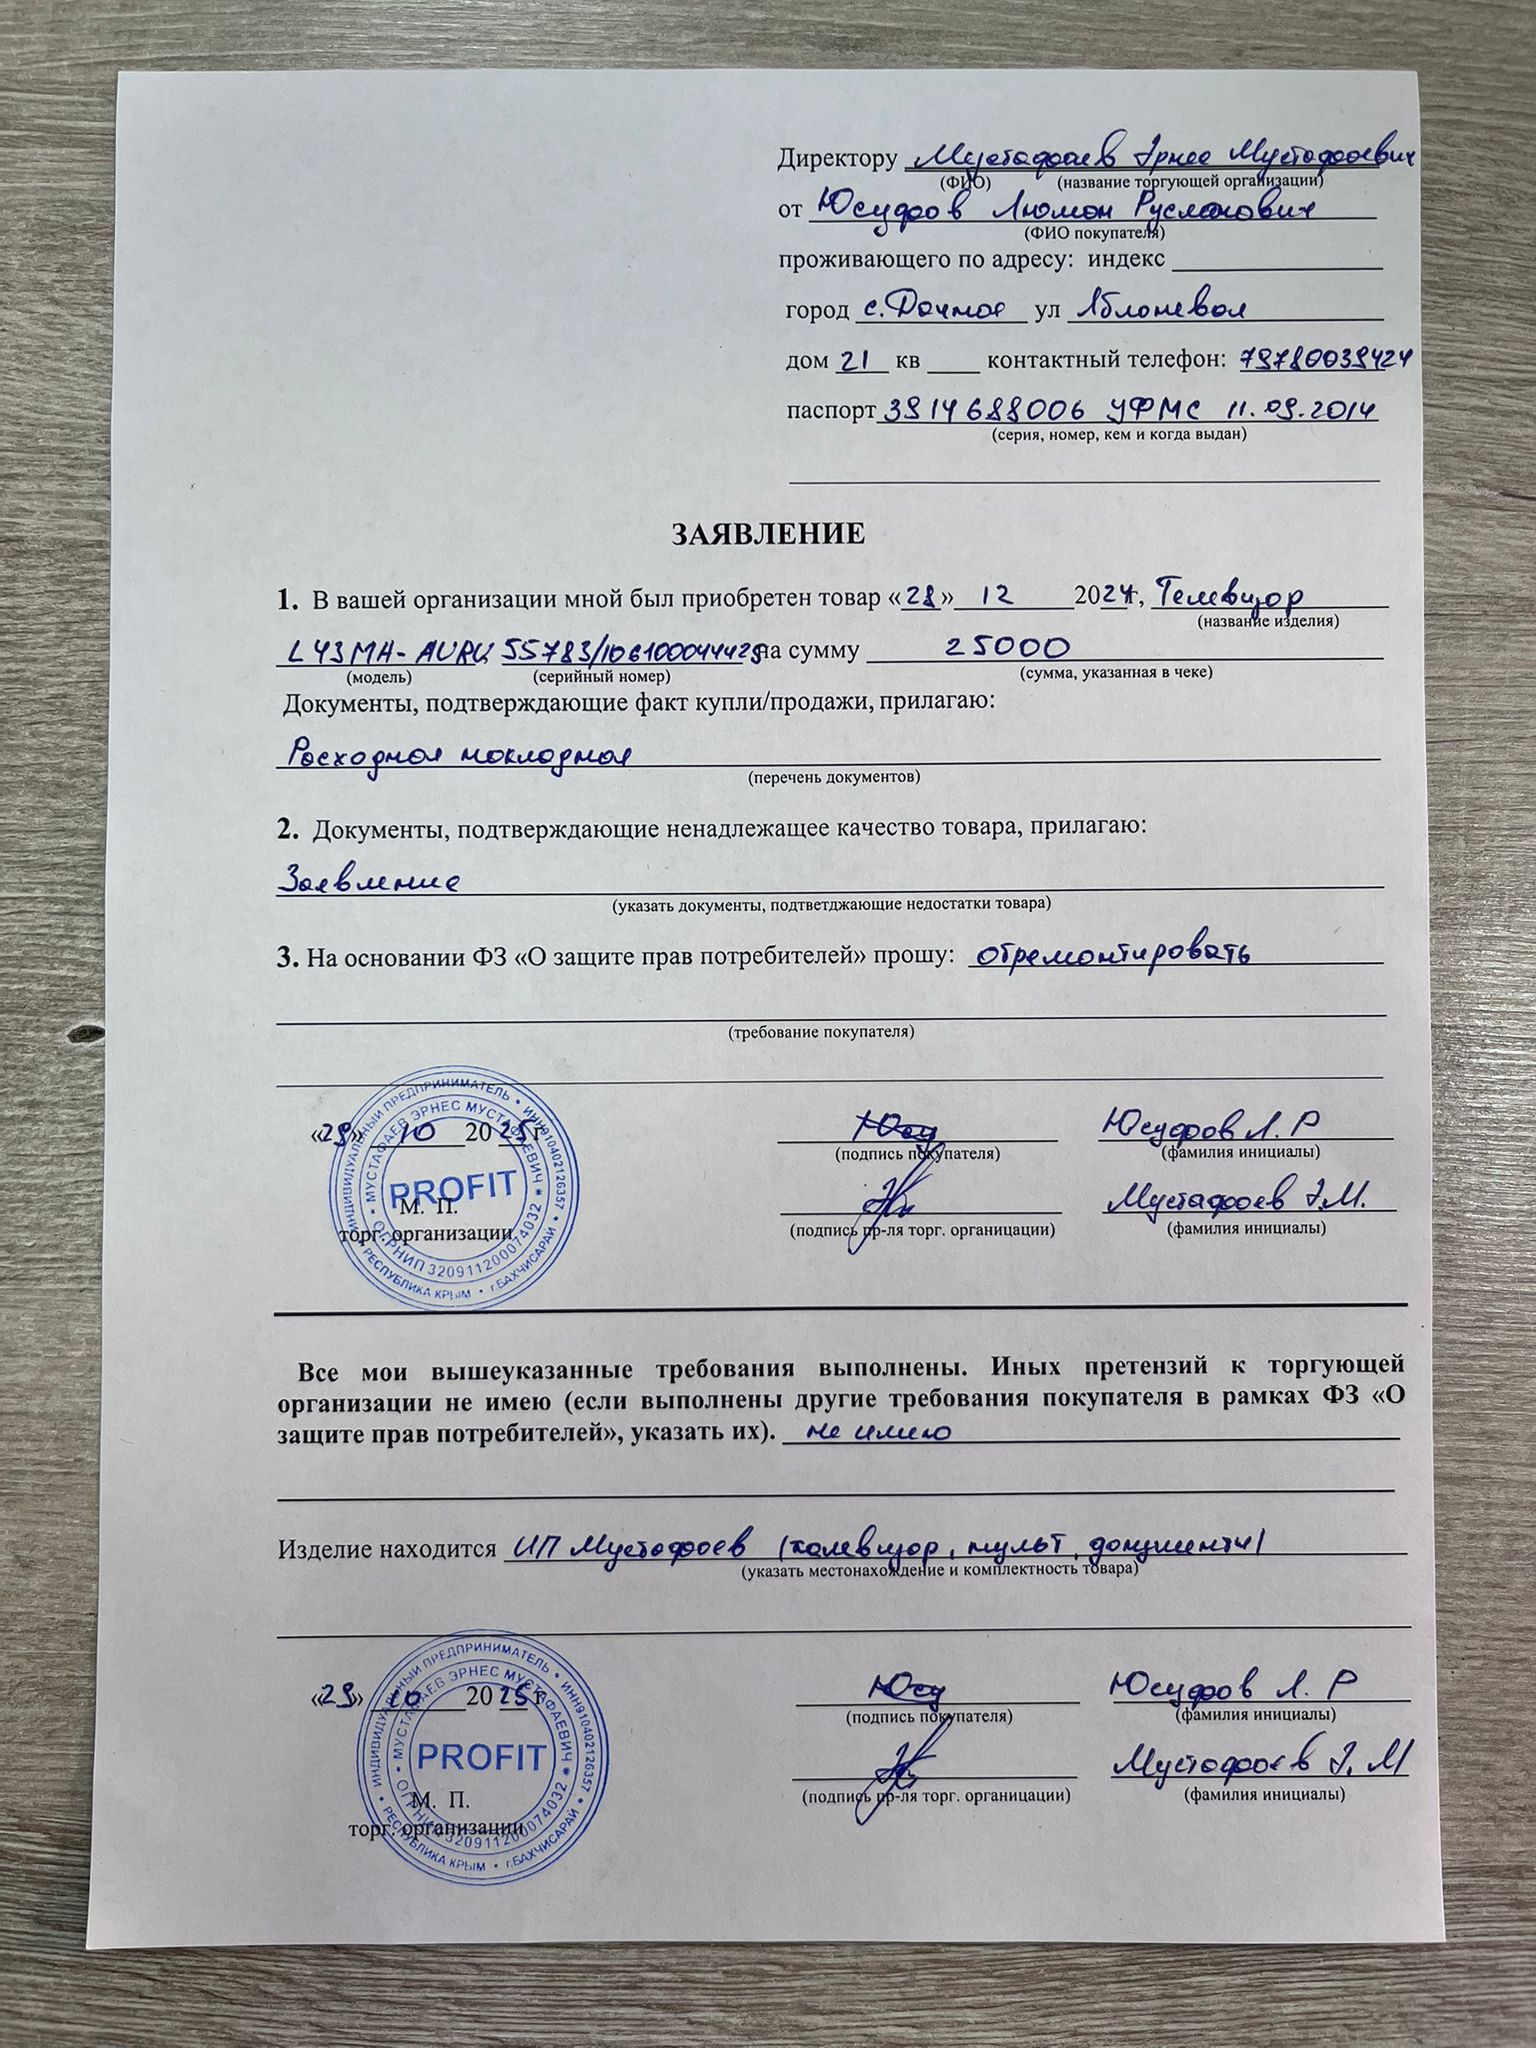 Директору Мустафаев Эрнес Мустафаевич
(ФИО) (название торгующей организации)
от Юсуфов Люман Русланович
(ФИО покупателя)
проживающего по адресу: индекс
город с. Дачное ул Яблоневая
дом 21 кв контактный телефон: 79780039424
паспорт 3914688006 УФМС 11.09.2014
(серия, номер, кем и когда выдан)
ЗАЯВЛЕНИЕ
1. В вашей организации мной был приобретен товар «28» 12 2024г, Телевизор
(название изделия)
L43MA-AURU 55783/106100044429 на сумму 25000
(модель) (серийный номер) (сумма, указанная в чеке)
Документы, подтверждающие факт купли/продажи, прилагаю:
Расходная накладная
(перечень документов)
2. Документы, подтверждающие ненадлежащее качество товара, прилагаю:
Заявление
(указать документы, подтветджающие недостатки товара)
3. На основании ФЗ «О защите прав потребителей» прошу: отремонтировать
(требование покупателя)
«29» 10 2025г Юсу Юсуфов Л. Р
(подпись покупателя) (фамилия инициалы)
Мустафаев Э.М.
(подпись пр-ля торг. органицации) (фамилия инициалы)
М. П.
торг. организации
ИНДИВИДУАЛЬНЫЙ ПРЕДПРИНИМАТЕЛЬ • ИНН910402126357 • г.БАХЧИСАРАЙ • РЕСПУБЛИКА КРЫМ •
МУСТАФАЕВ ЭРНЕС МУСТАФАЕВИЧ * ОГРНИП 320911200074032 *
PROFIT
Все мои вышеуказанные требования выполнены. Иных претензий к торгующей
организации не имею (если выполнены другие требования покупателя в рамках ФЗ «О
защите прав потребителей», указать их). не имею
Изделие находится ИП Мустафаев (телевизор, пульт, документы)
(указать местонахождение и комплектность товара)
«29» 10 2025г Юсу Юсуфов Л. Р
(подпись покупателя) (фамилия инициалы)
Мустафаев Э. М
(подпись пр-ля торг. органицации) (фамилия инициалы)
М. П.
торг. организации
ИНДИВИДУАЛЬНЫЙ ПРЕДПРИНИМАТЕЛЬ • ИНН910402126357 • г.БАХЧИСАРАЙ • РЕСПУБЛИКА КРЫМ •
МУСТАФАЕВ ЭРНЕС МУСТАФАЕВИЧ * ОГРНИП 320911200074032 *
PROFIT